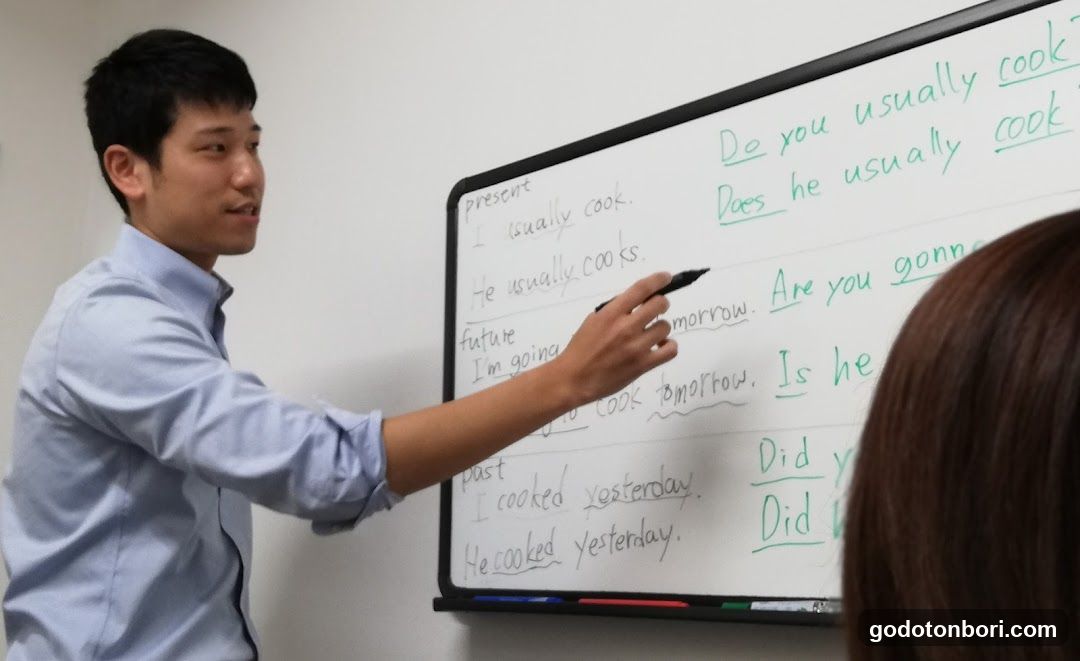 present
I usually cook.
He usually cooks.
future
I'm going tomorrow.
cook tomorrow.
past
I cooked yesterday.
He cooked yesterday.
Do you usually cook?
Does he usually cook?
Are you gonna
Is he
Did
Did
godotonbori.com